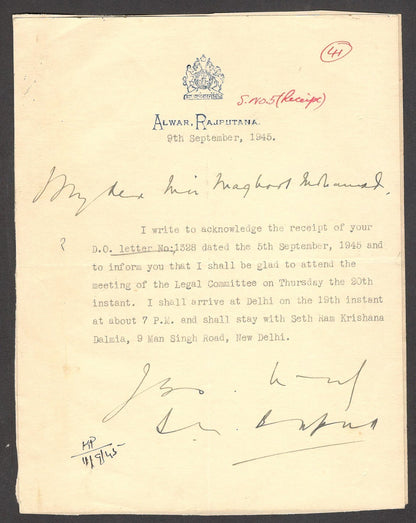 41
S. No. 5 (Receipt)
ALWAR, RAJPUTANA.
9th September, 1945.
My dear Mir Maqbool Mahmood,
I write to acknowledge the receipt of your
?
D.O. letter No:1328 dated the 5th September, 1945 and
to inform you that I shall be glad to attend the
meeting of the Legal Committee on Thursday the 20th
instant. I shall arrive at Delhi on the 19th instant
at about 7 P.M. and shall stay with Seth Ram Krishana
Dalmia, 9 Man Singh Road, New Delhi.